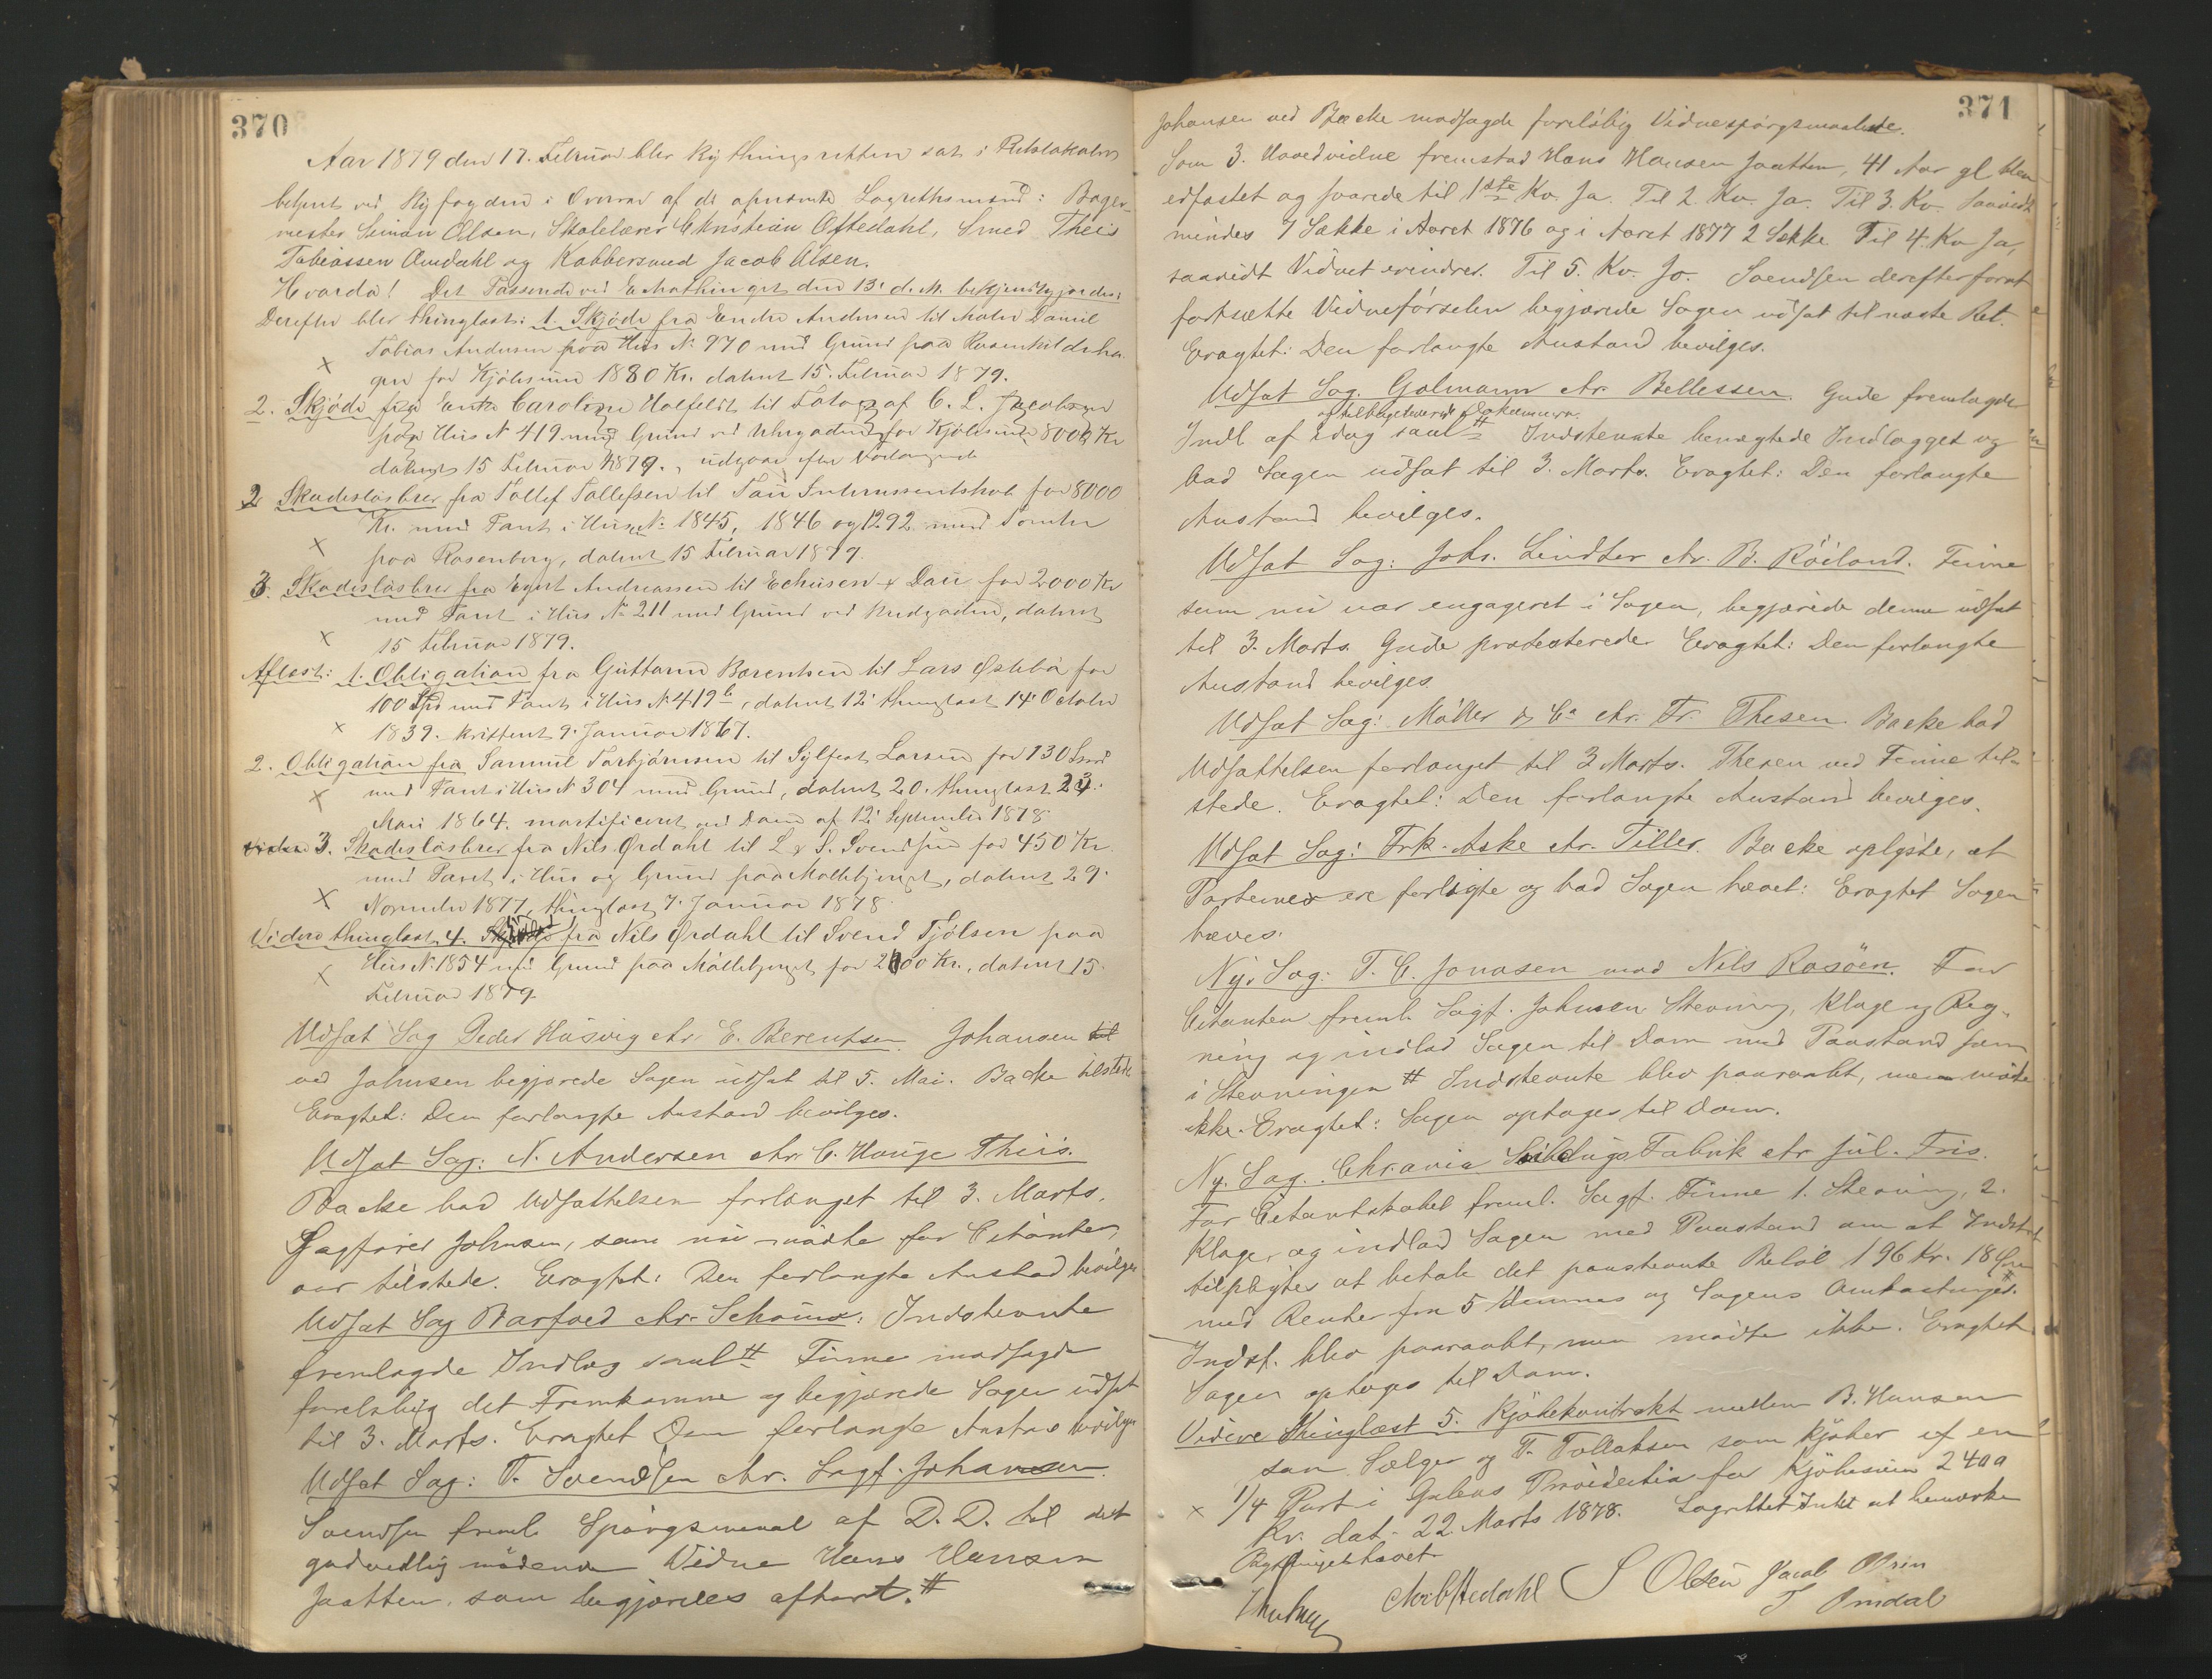 370
Aar 1879 den 17. Februar blev Bythingsretten sat i Retslokalet
betjent ved Byfogden i Overvær af de opnævnte Lagrethsmænd: Bager-
mester Simon Olsen, Skolelærer Christian Oftedahl, Smed Theis
Tobiassen Omdahl og Kobbersmed Jacob Olsen.
Hvorda! Det Passerede ved Extrathinget den 13' d. M. bekjendtgjordes;
Derefter blev thinglæst: 1. Skjöde fra Endre Andersen til Maler Daniel
Tobias Andersen paa Hus No 970 med Grund paa Rosenkildeha-
x gen for Kjöbesum 1880 Kr. datert 15. Februar 1879.
2. Skjöde fra Enke Caroline Holfeldt til Fotograf C. L. Jacobsen
paa Hus No 419 med Grund ved for Kjöbesum 8000 Kr
datert 15 Februar 1879., udgaar efter Forlangende
2 Skadeslösbrev fra Tollef Tollefsen til Tou Interessentskab for 8000
Kr. med Pant i Hus No 1845, 1846 og 1292 med Tomter
x paa Rosenberg, datert 15 Februar 1879.
3. Skadeslösbrev fra Egert Andreassen til & Dau for 2000 Kr
med Pant i Hus No 211 med Grund ved datert
x 15 Februar 1879.
Aflæst: 1. Obligation fra Guttorm Berentsen til Lars Østebö for
100 Spd med Pant i Hus No 419 b, datert 12' thinglæst 14' October
x 1839. kvittert 9' Januar 1867.
2. Obligation fra Samuel Torbjörnsen til Sylfest Larsen for 130
x med Pant i Hus No 304 med Grund, datert 20. thinglæst 23.
Mai 1864. mortificeret ved Dom af 12' September 1878.
3. Skadeslösbrev fra Nils Ørdahl til L & S. Svendsen for 450 Kr.
med Pant i Hus og Grund paa Möllebjerget, datert 29.
x November 1877, thinglæst 7. Januar 1878.
Videre thinglæst 4. Skjöde fra Nils Ørdahl til Svend Tjölsen paa
x Hus No 1854 med Grund paa Möllebjerget for 2100 Kr., datert 15.
Februar 1879.
Udsat Sag Peder Husvig ctr. E. Berentsen. Johansen til
ved Johnsen begjærede Sagen udsat til 5. Mai. Backe tilstede
Eragtet: Den forlangte Anstand bevilges.
Udsat Sag: N. Andersen ctr. C. Hauge Thiis.
Backe bad Udsættelsen forlænget til 3. Marts.
Sagförer Johnsen, som nu mödte for Citanten,
var tilstede. Eragtet: Den forlangte Anstad bevilges
Udsat Sag Barfoed ctr. Indstevnte
fremlagde Indlæg saal # Finne modsagde
foreløbig det Fremkomne og begjærede Sagen udsat
til 3. Marts. Eragtet Den forlangte Anstand bevilges
Udsat Sag: T. Svendsen ctr. Sagf. Johansen.
Svendsen freml. Spörgsmaal af D. D. til det
godvedlig mödende Vidne Hans Hansen
Jaatten, som begjæredes afhørt. #
371
Johansen ved Backe modsagde foreløbig Vidnespörgsmaalene.
Som 3. Hovedvidne fremstod Hans Hansen Jaatten, 41 Aar gl blev
edfæstet og svarede til 1ste Kv. Ja. Til 2. Kv. Ja. Til 3. Kv. Saavidt
mindes 7 Sække i Aaret 1876 og i Aaret 1877 2 Sække. Til 4. Kv Ja,
saavidt Vidnet erindrer. Til 5. Kv. Jo. Svendsen derefter forat
fortsætte Vidneförselen begjærede Sagen udsat til næste Ret.
Eragtet: Den forlangte Anstand bevilges.
Udsat Sag. Golmann ctr. Bellessen. Gude fremlagde
og tilbageleverede Dokumenter.
Indl af Idag saal # Indstevnte benægtede Indlægget og
bad Sagen udsat til 3. Marts. Eragtet: Den forlangte
Anstand bevilges.
Udsat Sag: Johs. Lindtner ctr. B. Röiland. Finne
som nu var engageret i Sagen, begjærede denne udsat
til 3. Marts. Gude protesterede Eragtet: Den forlangte
Anstand bevilges.
Udsat Sag: Möller & Co ctr. Fr. Thesen. Backe bad
Udsættelsen forlænget til 3 Marts. Thesen ved Finne til-
stede. Eragtet: Den forlangte Anstand bevilges.
Udsat Sag: Frk. Aske ctr. Tiller. Backe oplyste, at
Parterne ere forligte og bad Sagen hævet: Eragtet Sagen
hæves.
Ny. Sag: T. C. Jonasen mod Nils Rosöen. For
Citanten freml. Sagf. Johnsen Stevning, Klage og Reg-
ning og indlod Sagen til Dom med Paastand som
i Stevningen # Indstevnte blev paaraabt, men mödte
ikke. Eragtet: Sagen optages til Dom.
Ny. Sag. Chr.ania Fabrik ctr Jul. Friis.
For Citantskabet freml. Sagf. Finne 1. Stevning, 2.
Klage, og indlod Sagen med Paastand om at Indst
tilpligtes at betale det paastevnte Beløb 196 Kr. 18 Øre
med Renter fra 5 og Sagens Omkostninger. #
Indst. blev paaraabt, men mödte ikke. Eragtet
Sagen optages til Dom.
Videre thinglæst 5. Kjöbekontrakt mellem B. Hansen
som Sælger og T. Tollaksen som Kjöber af en
x 1/4 Part i Galeas Providentia for Kjöbesum 2400
Kr. dat. 22. Marts 1878. Lagrettet Intet at bemærke
Bythinget hævet
S Olsen Jacob Olsen
T Omdal